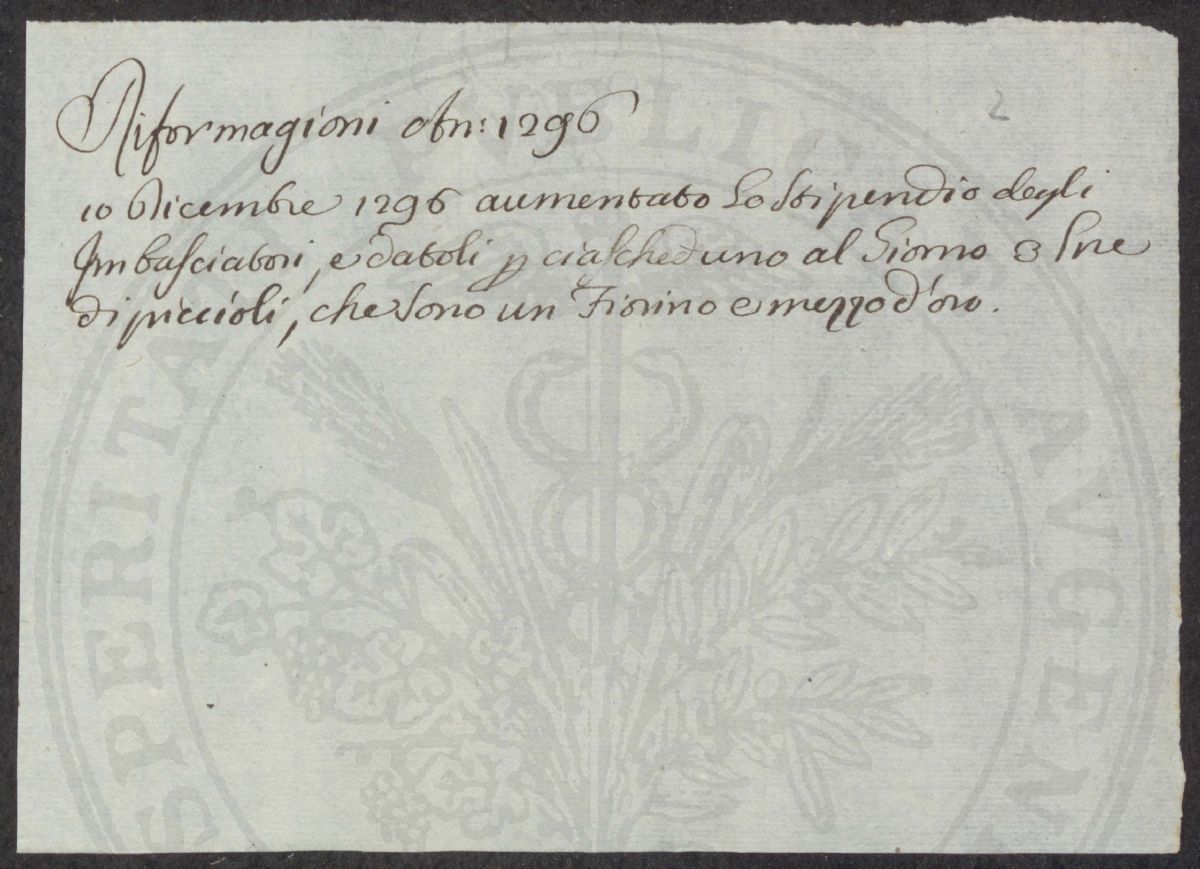 Riformagioni An: 1296
2
10 Dicembre 1296 aumentato lo stipendio degli
Imbasciatori, e datoli p ciascheduno al Giorno 3 lire
di piccioli, che sono un Fiorino e mezzo d'oro.
PVBLICAE
AVGEN
SPERITA